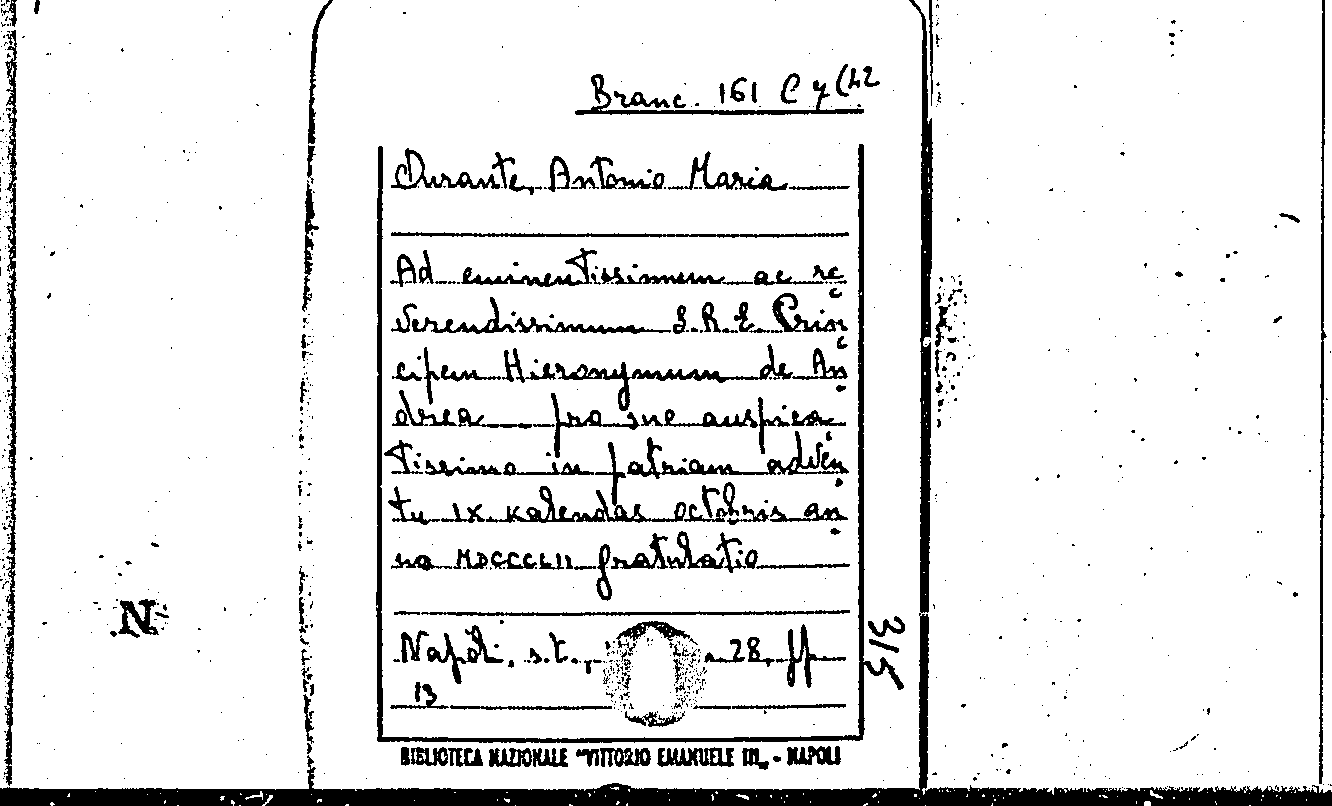 Branc. 161 C 7 (42
Durante, Antonio Maria
Ad eminentissimum ac re
verendissimum S.R.E. Prin
cipem Hieronymum de An
drea pro suo auspica
tissimo in patriam adven
tu IX kalendas octobris an
no MDCCCLII gratulatio
Napoli, s.t., 28, pp
13
315
N
BIBLIOTECA NAZIONALE "VITTORIO EMANUELE III" - NAPOLI